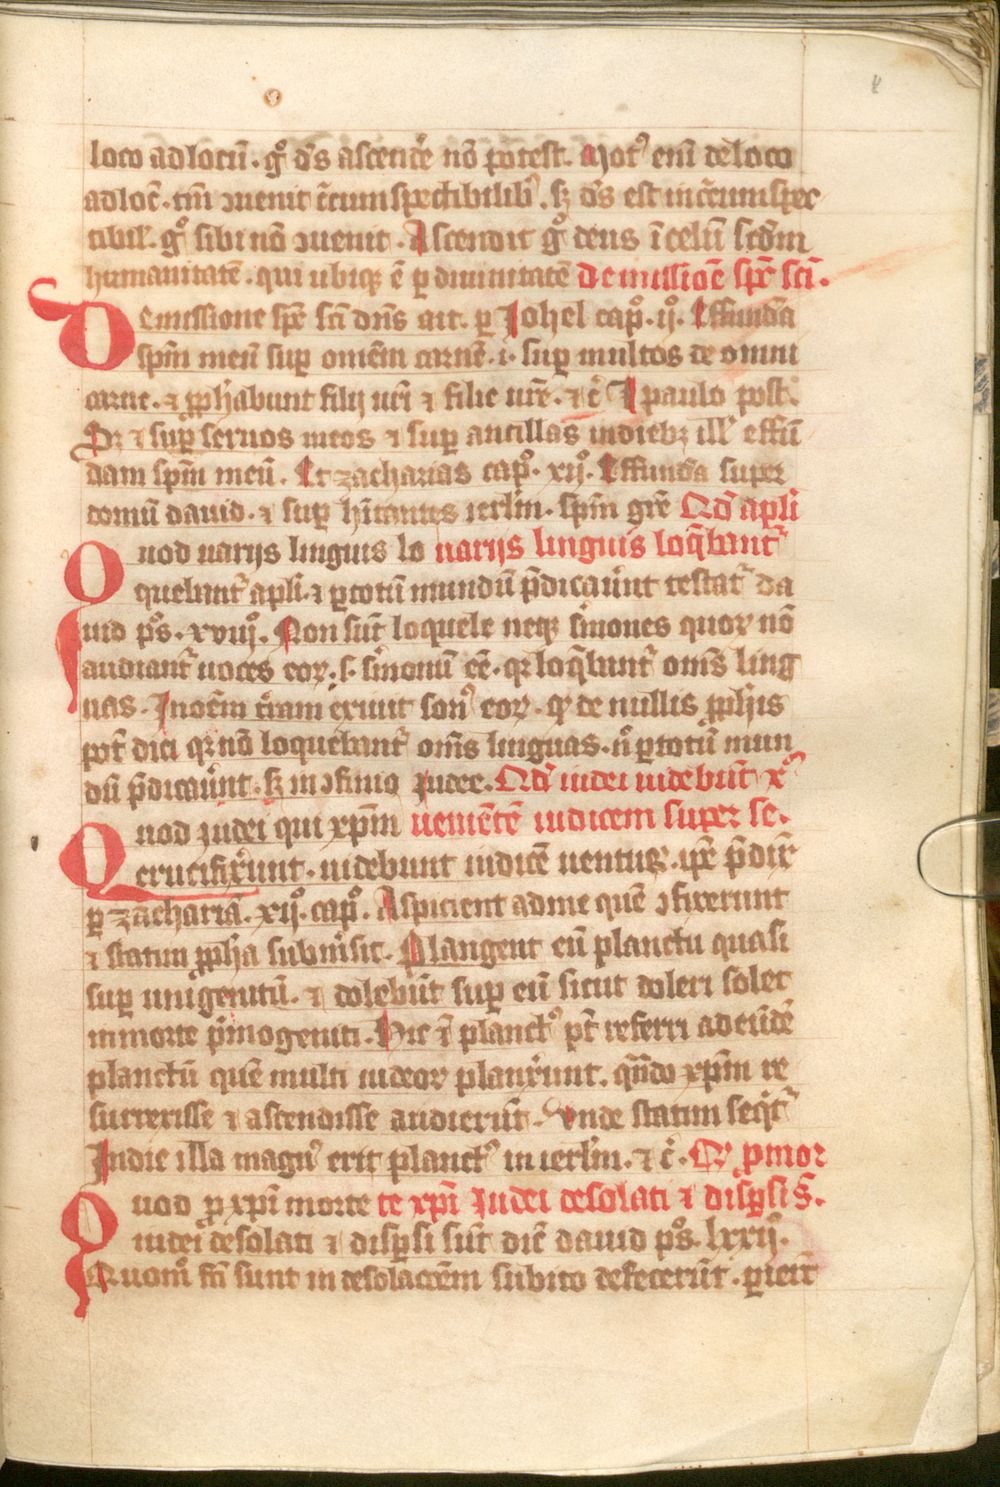 loco ad locū. gͦ dˢ ascendˢe nō potest. Motˀ enī de loco
ad locū. tm̄ ↄuenit cͥcumspectibilibˀ. sꝫ dˢ est incͥcumspec
tibil̓. gͦ sibi nō ↄuenit. Ascendit gͦ deus ī celū scd̄m
humanitatē. qui ubiqꝫ ē ꝑ diuinitatē De missiōe sp̄c sc̄i.
De missione sp̄c sc̄i dn̄s ait. ꝑ Johel cap̊. ij̊. Effundā
spm̄ meū suꝑ omēm carnē. i. suꝑ multos de omni
carne. ⁊ ꝓph̄abunt filij ur̄i ⁊ filie ur̄e. ⁊ c̄ Et paulo post.
Sꝫ ⁊ suꝑ seruos meos ⁊ suꝑ ancillas in diebꝫ ill̓ effū
dam spm̄ meū. Et zacharias cap̊. xij̊. Effundā super
domū dauid. ⁊ suꝑ hītantes ierl̄m. spm̄ gr̄e Qd̄ apl̄i
Quod uarijs linguis lo uarijs linguis loq̄bantˢ
quebantˢ apl̄i. ⁊ ꝑ totū mundū p̄dicauˢunt testatˢ da
uid p̄s. xviij̊. Non sūt loquele neqꝫ sˢmones quoꝝ nō
audiantˢ uoces eoꝝ. s. sˢmonū eē. qꝛ loq̄buntˢ oms̄ ling
uas. In oēm tˢram exiuit sonˀ eoꝝ. qꝛ de nullis ꝓph̄is
pōt dici qꝛ nō loquebantˢ oms̄ linguas. nͦ ꝑ totū mun
dū p̄dicauˢunt. sꝫ in ↄfinio iudee. Qd̄ iudei uidebūt xͫ
Quod iudei qui xpm̄ ueniētē iudicem super se.
crucifixˢunt. uidebunt iudicē uenturꝫ. ip̄e p̄dixͥ
ꝑ zachariā. xij̊. cap̊. Aspicient ad me quē ↄfixerunt
⁊ statim ꝓph̄a subiuxit. Plangent eū planctu quasi
suꝑ unigenitū. ⁊ dolebūt suꝑ eū sicut doleri solet
in morte pͥmogeniti. Hic ī planctˀ pt̄ referri ad eūdē
planctū quē multi iudeoꝝ planxˢunt. qn̄do xpm̄ re
surrexisse ⁊ ascendisse audierūt. Vnde statim seqͥtˢ
In die illa magnˀ erit planctˀ in ierl̄m. ⁊ c̄. Qꝛ ꝓ mor
Quod ꝓ xpī morte te xpī Iudei desolati ⁊ disꝑsi s̄.
iudei desolati ⁊ disꝑsi sūt dic̄ dauid p̊s. lxxij̊.
Quomͦ fc̄i sunt in desolac̄oēm subito defecerūt. ꝑierūt